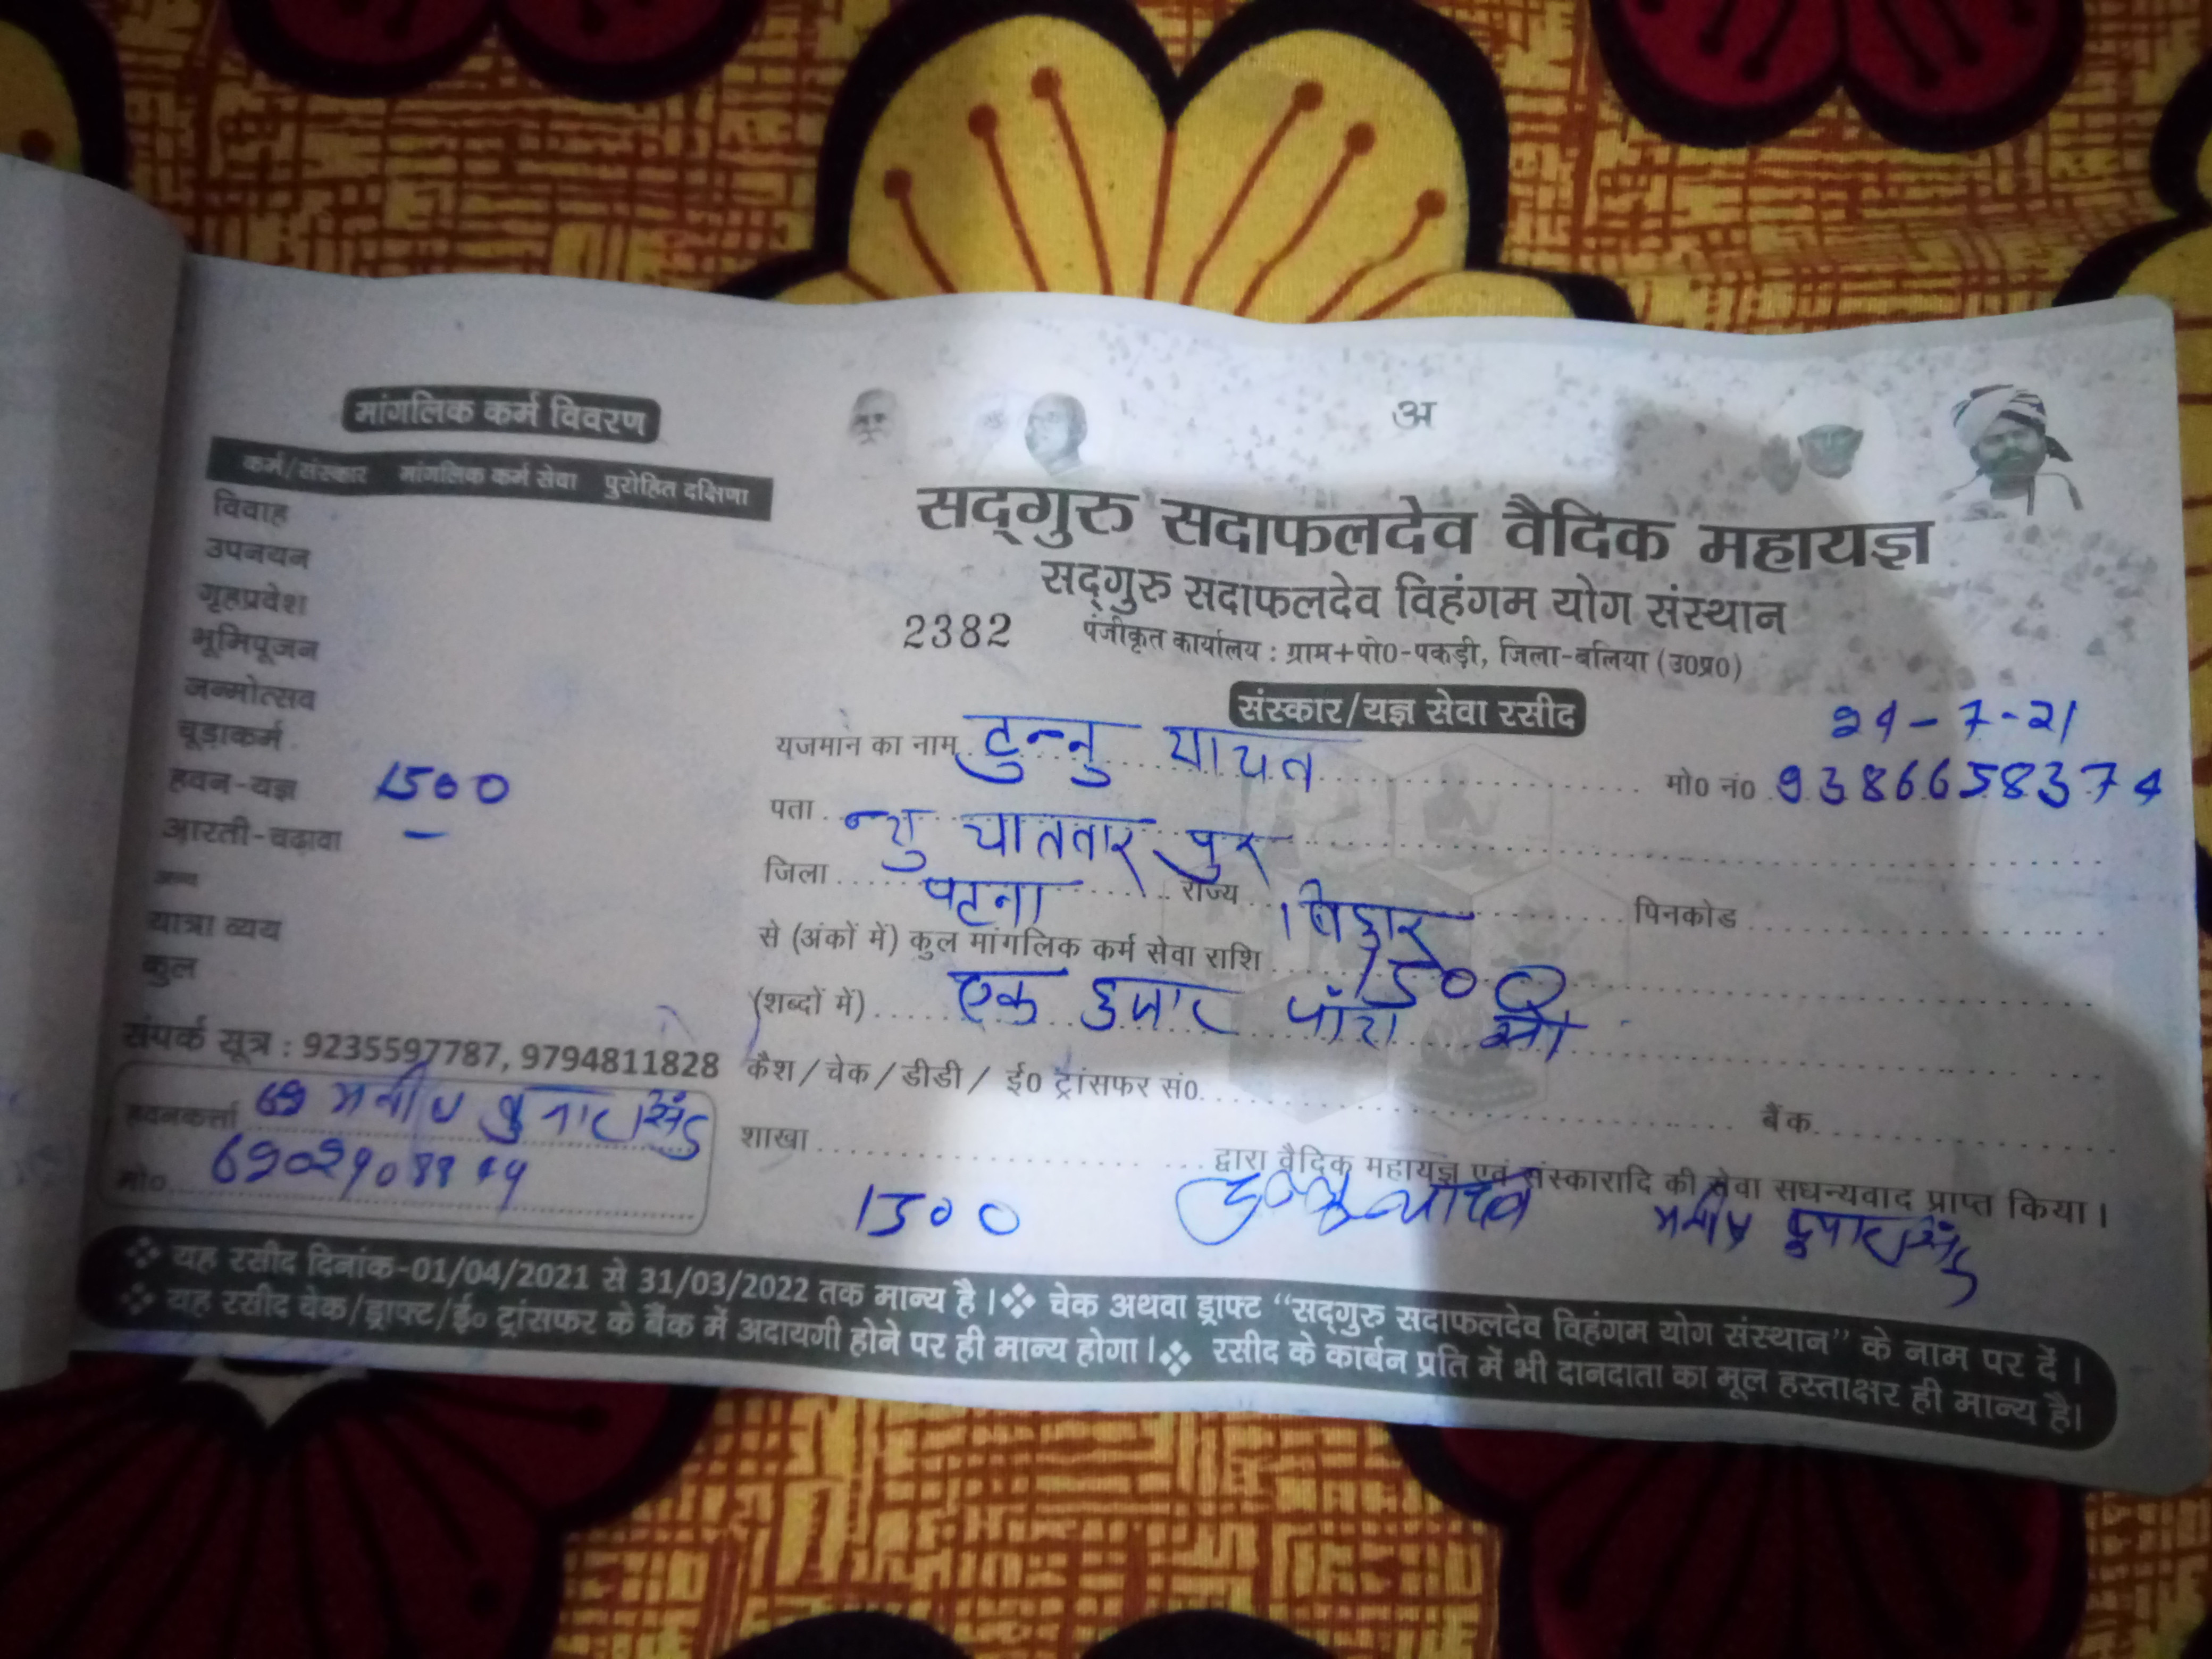 मांगलिक कर्म विवरण
कर्म/संस्कार मांगलिक कर्म सेवा पुरोहित दक्षिणा
विवाह
उपनयन
गृहप्रवेश
भूमिपूजन
जन्मोत्सव
चूड़ाकर्म
हवन-यज्ञ 1500
आरती-चढ़ावा –
अन्य
यात्रा व्यय
कुल
संपर्क सूत्र : 9235597787, 9794811828
हवनकर्त्ता
मो०
अ
सद्गुरु सदाफलदेव वैदिक महायज्ञ
सद्गुरु सदाफलदेव विहंगम योग संस्थान
2382 पंजीकृत कार्यालय : ग्राम+पो0-पकड़ी, जिला-बलिया (उ0प्र0)
संस्कार/यज्ञ सेवा रसीद
24-7-21
यजमान का नाम टुन्नु मो0 नं0 9386658374
पता न्यु
जिला पटना राज्य बिहार पिनकोड
से (अंकों में) कुल मांगलिक कर्म सेवा राशि 1500
(शब्दों में) एक हजार पाँच सौ
कैश/चेक/डीडी/ ई0 ट्रांसफर सं0 बैंक
शाखा द्वारा वैदिक महायज्ञ एवं संस्कारादि की सेवा सधन्यवाद प्राप्त किया।
1500
❖ यह रसीद दिनांक-01/04/2021 से 31/03/2022 तक मान्य है। ❖ चेक अथवा ड्राफ्ट “सद्गुरु सदाफलदेव विहंगम योग संस्थान” के नाम पर दें।
❖ यह रसीद चेक/ड्राफ्ट/ई० ट्रांसफर के बैंक में अदायगी होने पर ही मान्य होगा। ❖ रसीद के कार्बन प्रति में भी दानदाता का मूल हस्ताक्षर ही मान्य है।